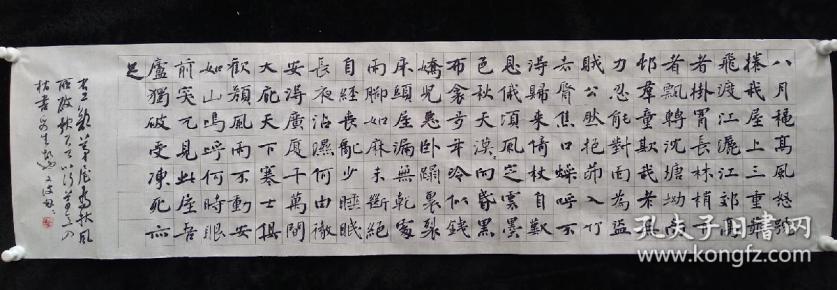 八月穐高風怒號
捲我屋上三重茅
飛渡江灑江郊高
者掛罥長林梢下
者飄轉沈塘坳南
邨羣童欺我老無
力忍能對面為盜
賊公然抱茆入竹
去脣焦口燥呼不
得歸来倚杖自歎
息俄頃風定雲墨
色秋天漠〻向昏黑
布衾多年冷似錢
嬌兒惡卧蹋裏裂
床頭屋漏無乾處
雨腳如麻未斷絕
自經喪亂少睡眠
長夜沾濕何由徹
安得廣厦千萬間
大庇天下寒士俱
歡顏風雨不動安
如山嗚呼何時眼
前突兀見此屋吾
廬獨破受凍死亦
足
茅屋為秋風
所破歌
孔夫子旧书网
kongfz.com